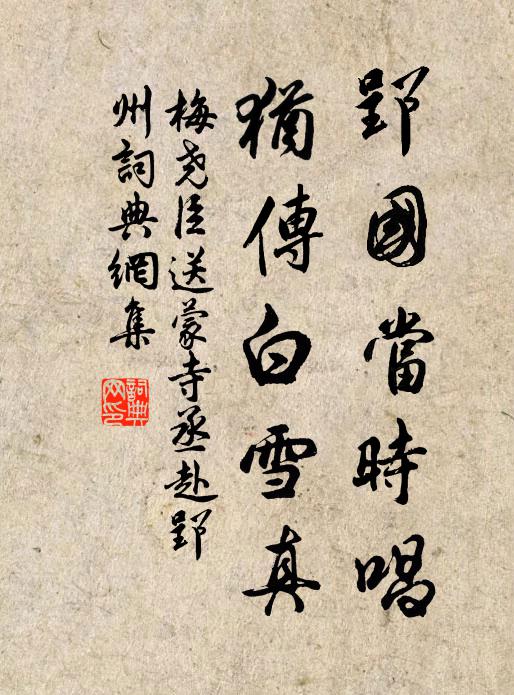 郢國當時唱
猶傳白雪真
梅堯臣送蒙寺丞赴郢
州詞典網集
詞典
网印